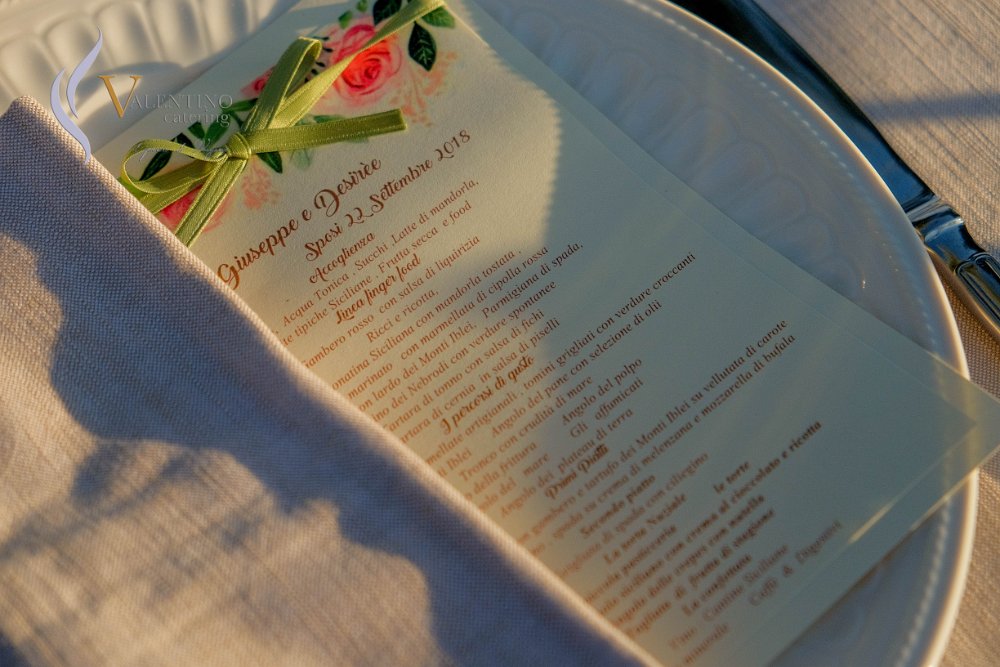 VALENTINO
catering
Giuseppe e Desirèe
Sposi 22 Settembre 2018
Accoglienza
Acqua Tonica , Succhi ,Latte di mandorla,
te tipiche Siciliane , Frutta secca e food
Linea finger food
ambero rosso con salsa di liquirizia
Ricci e ricotta ,
onatina Siciliana con mandorla tostata ,
marinato con marmellata di cipolla rossa
on lardo dei Monti Iblei, Parmigiana di spada,
ino dei Nebrodi con verdure spontanee
artara di tonno con salsa di fichi
artara di cernia in salsa di piselli
I percorsi di gusto
mellate artigianali , tomini grigliati con verdure croccanti
Iblei Angolo del pane con selezione di olii
Tronco con crudità di mare
o della frittura Angolo del polpo
olo del mare Gli affumicati
Angolo dei plateau di terra
Primi Piatti
n gambero e tartufo dei Monti Iblei su vellutata di carote
spada su crema di melenzana e mozzarella di bufala
Secondo piatto
di spada con ciliegino
La torta Nuziale le torte
pasticceria
siciliano con crema al cioccolato e ricotta
crepes con nutella
Tagliate di frutta di stagione
La confettata
Cantine Siciliane
minerale Caffè & Digestivi